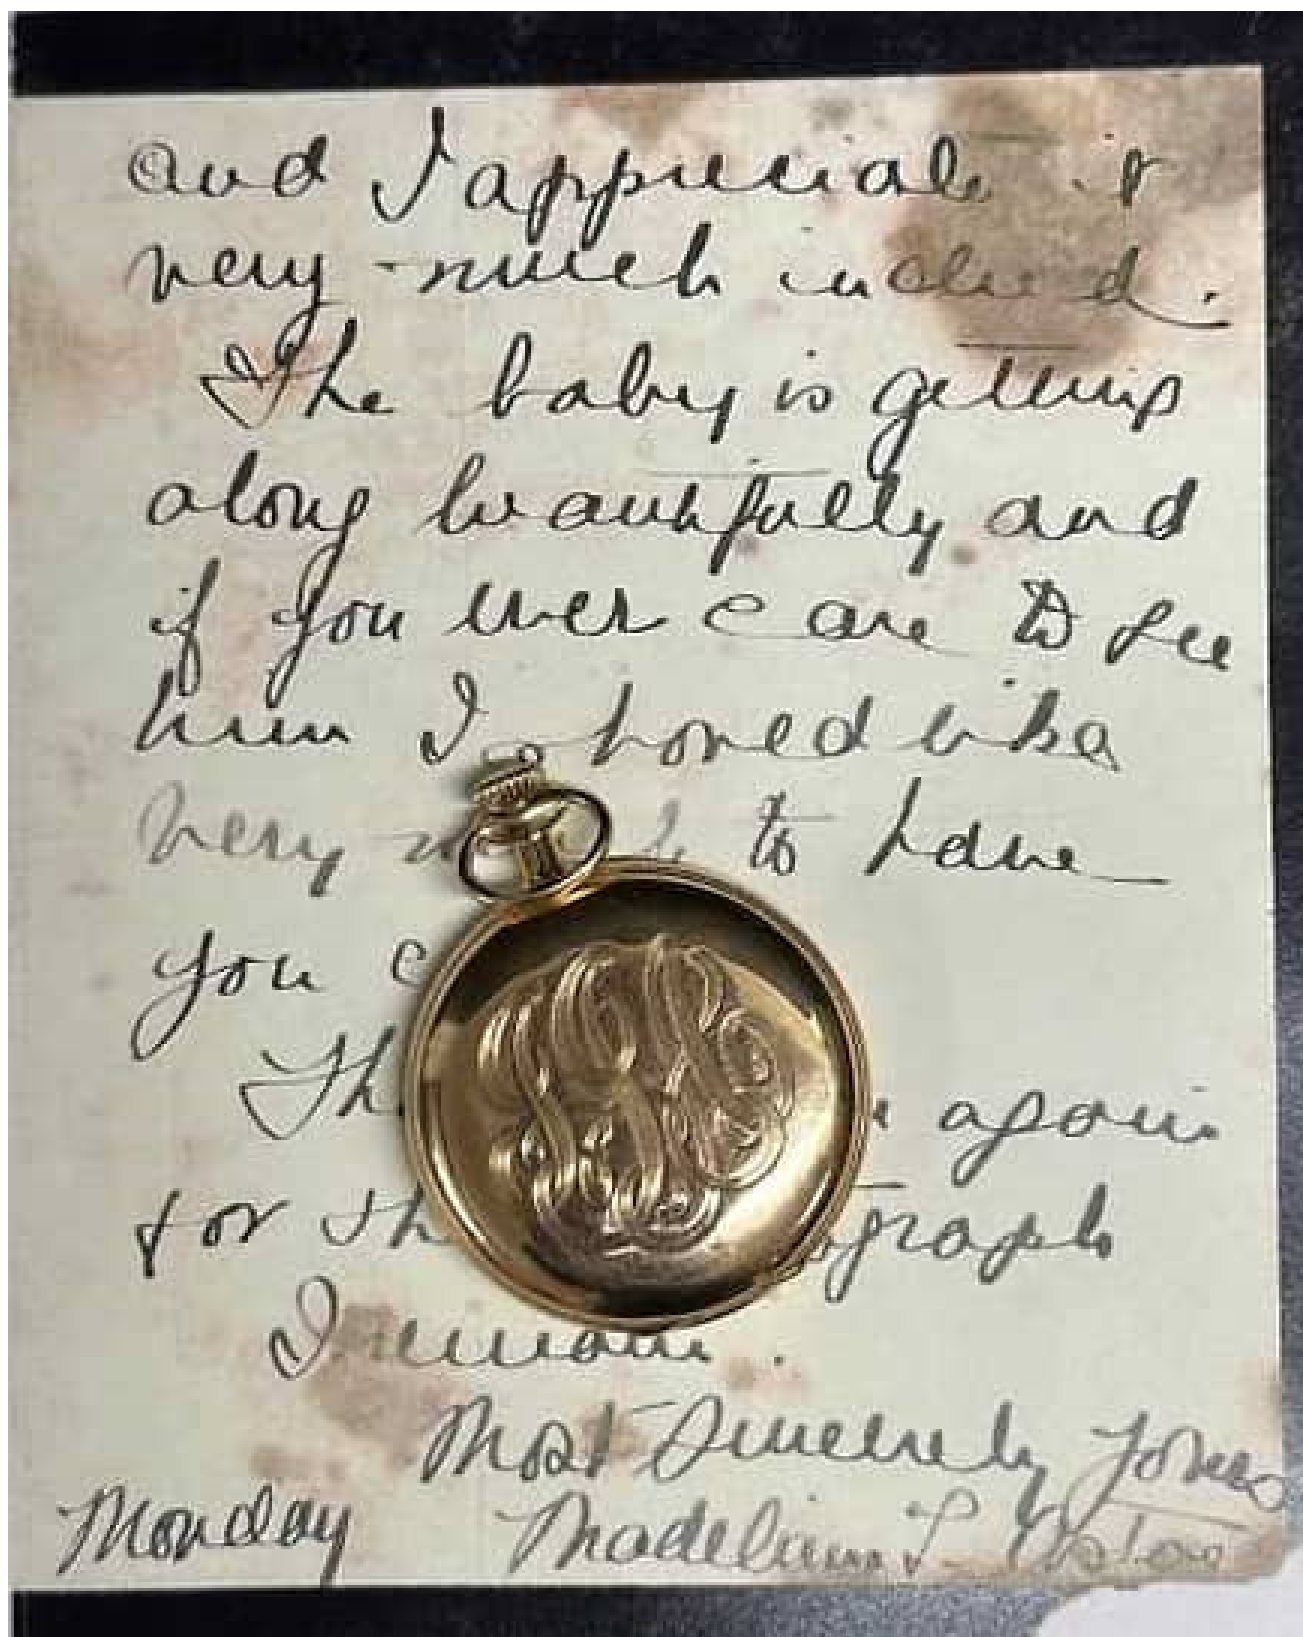 and I appreciate it
very much indeed.
The baby is getting
along beautifully and
if you ever care to see
him I should like
very to have
you
again
for
I remain.
Most Sincerely Yours
Monday Madeleine F. Astor